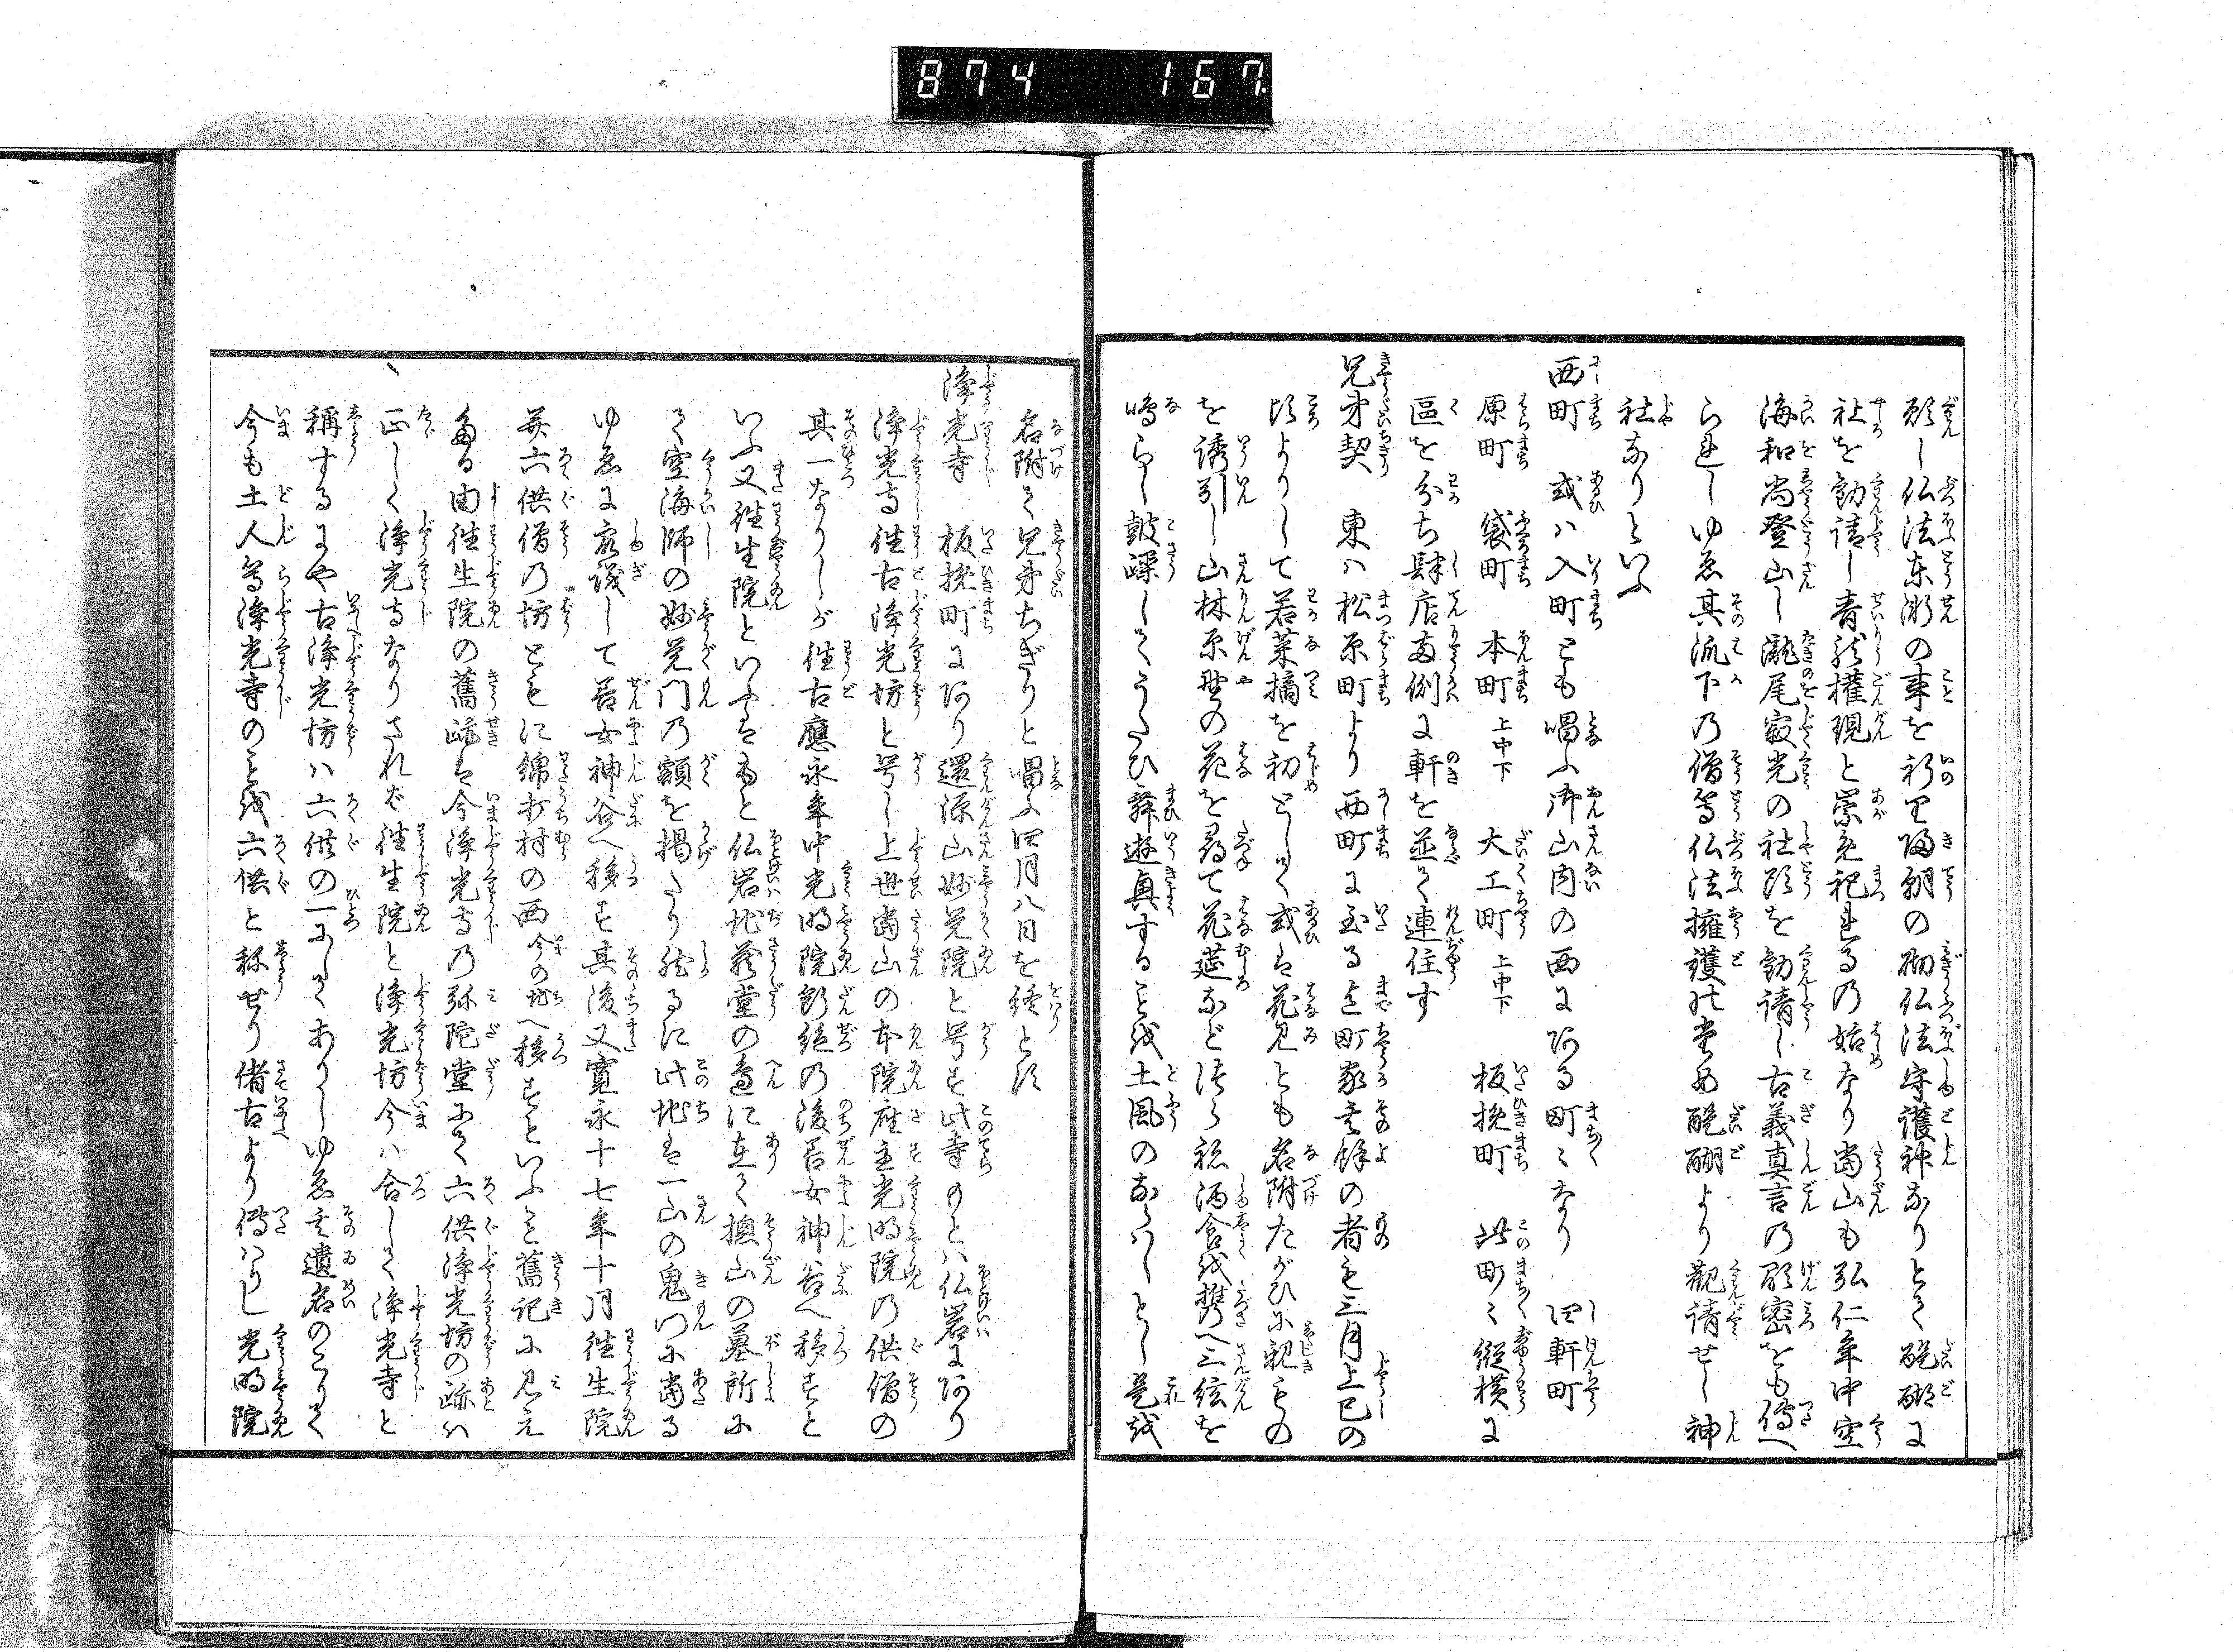 874 167
願し仏法東漸の事を祈里帰朝の砌仏法守護神なりとて醍醐に
社を勧請し青龍権現と崇免祀れるの始なり当山も弘仁年中空
海和尚登山し瀧尾寂光の社頭を勧請し古義真言の顕密をも傳へ
られしゆゑ其流下の僧等仏法擁護のため醍醐より勧請せし神
社なりといふ
西町 或ハ入町とも唱ふ御山内の西にある町々なり 四軒町
原町 袋町 本町上中下 大工町上中下 板挽町 此町々縦横に
區を分ち肆店両側に軒を並て連住す
兄弟契 東ハ松原町より西町に至る迄町家其餘の者も三月上巳の
頃よりして若菜摘を初として或は花見とも名附たがひに親もの
を誘引し山林原野の花を尋て花莚など設ら祗酒食を携へ三絃を
鳴らし鼓躁してうたひ舞遊興することを土風のならハしとし是を
名附て兄弟ちぎりと唱ふ四月八日を終とす
浄光寺 板挽町にあり還源山妙覚院と号す此寺のもとハ仏岩にあり
浄光寺往古浄光坊と号し上世当山の本院座主光明院の供僧の
其一なりしが往古應永年中光明院断絶の後若女神谷へ移すと
いふ又往生院といふはもと仏岩地蔵堂の邊に在て摠山の墓所に
て空海師の妙覚門の額を掲たり然るに此地は一山の鬼門に当る
ゆゑに衆議して若女神谷へ移す其後又寛永十七年十月往生院
并六供僧の坊ともに錦打村の西今の地へ移すといふこと舊記に見え
たる由往生院の舊跡は今浄光寺の弥陀堂にて六供浄光坊の跡ハ
正しく浄光寺なりされば往生院と浄光坊今ハ合して浄光寺と
稱するにや古浄光坊ハ六供の一にてありしゆゑ其遺名のこりて
今も土人等浄光寺のことを六供と称せり偖古より傳ハりし光明院